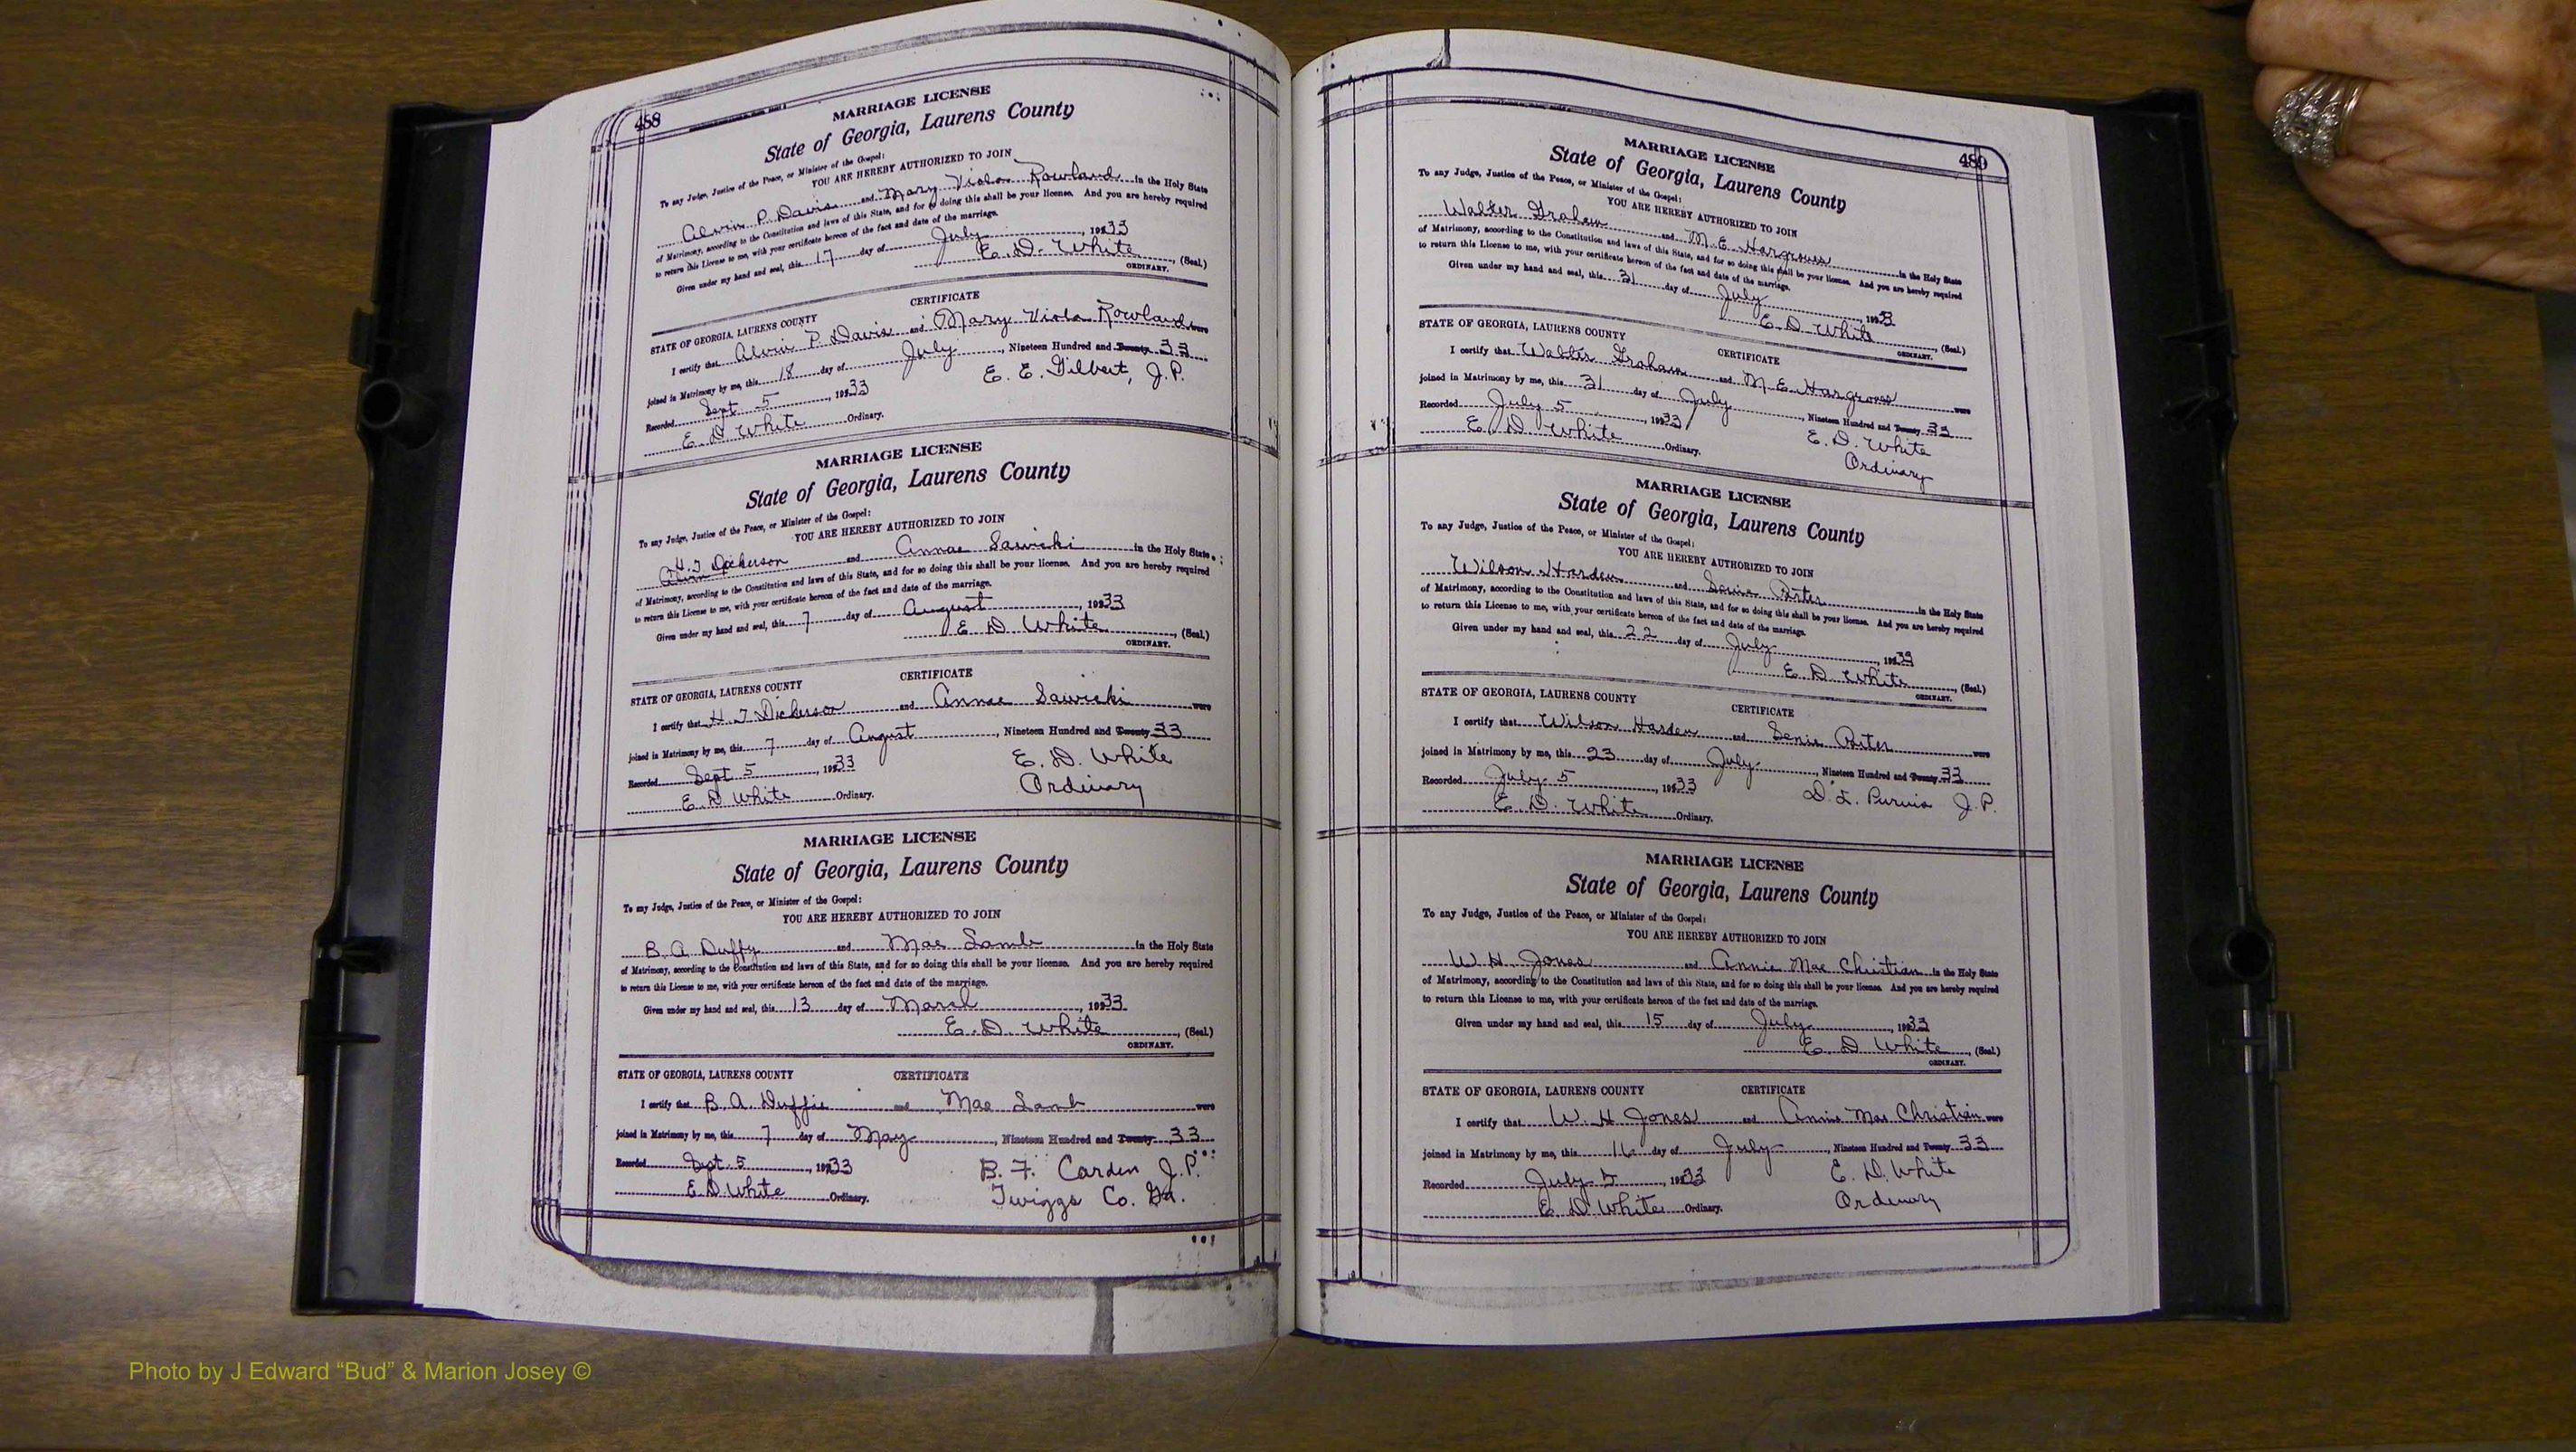 458
MARRIAGE LICENSE
State of Georgia, Laurens County
To any Judge, Justice of the Peace, or Minister of the Gospel:
YOU ARE HEREBY AUTHORIZED TO JOIN
Alvin P. Davis and Mary Viola Rowland in the Holy State
of Matrimony, according to the Constitution and laws of this State, and for so doing this shall be your license. And you are hereby required
to return this License to me, with your certificate hereon of the fact and date of the marriage.
Given under my hand and seal, this 17 day of July, 1933
E. D. White, (Seal.)
ORDINARY.
CERTIFICATE
STATE OF GEORGIA, LAURENS COUNTY
I certify that Alvin P Davis and Mary Viola Rowland were
joined in Matrimony by me, this 18 day of July, Nineteen Hundred and Twenty 33
Recorded Sept 5, 1933 E. E. Gilbert, J.P.
E. D. White Ordinary.
MARRIAGE LICENSE
State of Georgia, Laurens County
To any Judge, Justice of the Peace, or Minister of the Gospel:
YOU ARE HEREBY AUTHORIZED TO JOIN
H. T Dickerson
Alvin and Annae Sawicki in the Holy State
of Matrimony, according to the Constitution and laws of this State, and for so doing this shall be your license. And you are hereby required
to return this License to me, with your certificate hereon of the fact and date of the marriage.
Given under my hand and seal, this 7 day of August, 1933
E D White, (Seal.)
ORDINARY.
CERTIFICATE
STATE OF GEORGIA, LAURENS COUNTY
I certify that H T Dickerson and Annae Sawicki were
joined in Matrimony by me, this 7 day of August, Nineteen Hundred and Twenty 33
Recorded Sept 5, 1933 E. D. White
E. D White Ordinary. Ordinary
MARRIAGE LICENSE
State of Georgia, Laurens County
To any Judge, Justice of the Peace, or Minister of the Gospel:
YOU ARE HEREBY AUTHORIZED TO JOIN
B. A Duffy and Mae Lamb in the Holy State
of Matrimony, according to the Constitution and laws of this State, and for so doing this shall be your license. And you are hereby required
to return this License to me, with your certificate hereon of the fact and date of the marriage.
Given under my hand and seal, this 13 day of March, 1933
E. D. White, (Seal)
ORDINARY.
STATE OF GEORGIA, LAURENS COUNTY CERTIFICATE
I certify that B. A. Duffie and Mae Lamb were
joined in Matrimony by me, this 7 day of May, Nineteen Hundred and Twenty 33
Recorded Sept. 5, 1933 B. F. Carden J.P.
E. D. White Ordinary. Twiggs Co. Ga.
MARRIAGE LICENSE
State of Georgia, Laurens County
To any Judge, Justice of the Peace, or Minister of the Gospel:
YOU ARE HEREBY AUTHORIZED TO JOIN
Walter Graham and M. E. Hargroves in the Holy State
of Matrimony, according to the Constitution and laws of this State, and for so doing this shall be your license. And you are hereby required
to return this License to me, with your certificate hereon of the fact and date of the marriage.
Given under my hand and seal, this 31 day of July, 1933
E. D. White, (Seal.)
ORDINARY.
STATE OF GEORGIA, LAURENS COUNTY CERTIFICATE
I certify that Walter Graham and M E Hargroves were
joined in Matrimony by me, this 31 day of July, Nineteen Hundred and Twenty 33
Recorded July 5, 1933 E. D. White
E. D. White Ordinary. Ordinary
MARRIAGE LICENSE
State of Georgia, Laurens County
To any Judge, Justice of the Peace, or Minister of the Gospel:
YOU ARE HEREBY AUTHORIZED TO JOIN
Wilson Harden and in the Holy State
of Matrimony, according to the Constitution and laws of this State, and for so doing this shall be your license. And you are hereby required
to return this License to me, with your certificate hereon of the fact and date of the marriage.
Given under my hand and seal, this 22 day of July, 1933
E. D. White, (Seal.)
ORDINARY.
STATE OF GEORGIA, LAURENS COUNTY CERTIFICATE
I certify that Wilson Harden and were
joined in Matrimony by me, this 23 day of July, Nineteen Hundred and Twenty 33
Recorded July 5, 1933 Purvis J.P.
E. D. White Ordinary.
MARRIAGE LICENSE
State of Georgia, Laurens County
To any Judge, Justice of the Peace, or Minister of the Gospel:
YOU ARE HEREBY AUTHORIZED TO JOIN
W. H. Jones and Annie Mae Christian in the Holy State
of Matrimony, according to the Constitution and laws of this State, and for so doing this shall be your license. And you are hereby required
to return this License to me, with your certificate hereon of the fact and date of the marriage.
Given under my hand and seal, this 15 day of July, 1933
E. D White, (Seal.)
ORDINARY.
STATE OF GEORGIA, LAURENS COUNTY CERTIFICATE
I certify that W. H Jones and Annie Mae Christian were
joined in Matrimony by me, this 16 day of July, Nineteen Hundred and Twenty 33
Recorded July 5, 1933 E. D. White
E. D. White Ordinary. Ordinary
Photo by J Edward “Bud” & Marion Josey ©